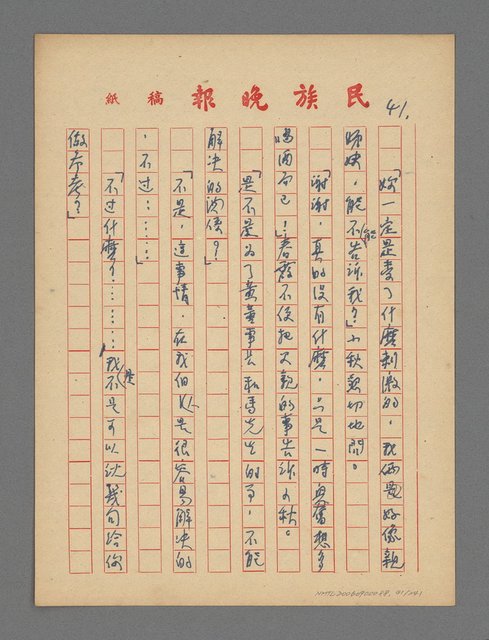 民族晚報稿紙
41.
「妳一定是受了什麼刺激的，我倆是好像親
姊妹，能不能告訴我？」小秋親切地問。
「謝謝，真的沒有什麼，只是一時興奮想多
喝酒而已！」春霞不便把父親的事告訴小秋。
「是不是為了黃董事長和馬先生的事，不能
解決的關係？」
「不是，這事情，在我們是很容易解決的
，不过……」
「不过什麼？……我是不是可以說幾句給你
做參考？」
NMTL20060900088. 41/241